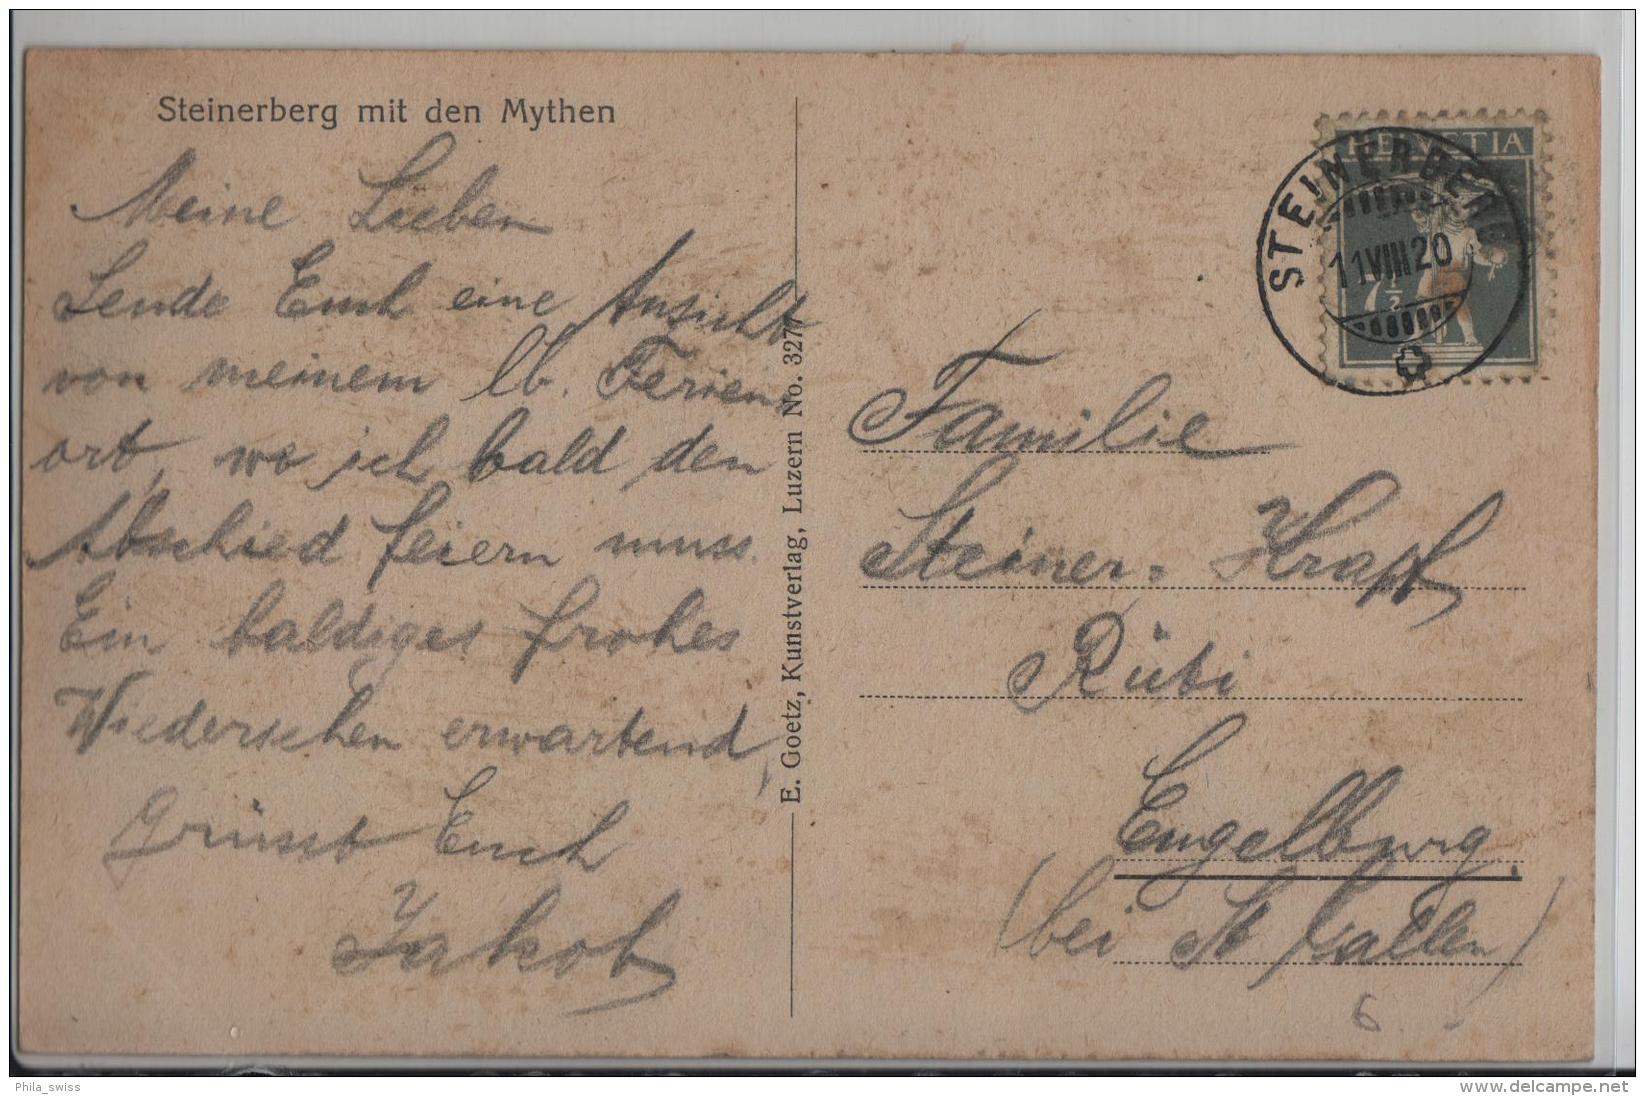 Steinerberg mit den Mythen
Meine Lieben
Sende Euch eine Ansicht
von meinem lb. Ferien-
ort, wo ich bald den
Abschied feiern muss.
Ein baldiges frohes
Wiedersehen erwartend,
Grüsst Euch
Jakob
E. Goetz, Kunstverlag, Luzern No. 3277
HELVETIA
7½
STEINERBERG
11 VIII 20
Familie
Steiner-Krapf
Rüti
Engelburg.
(bei St Gallen)
6
Phila_swiss
www.delcampe.net